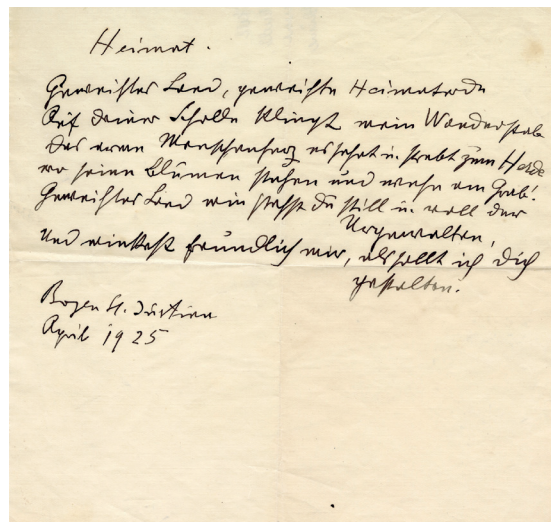 Heimat.
Geweihtes Land, geweihte Heimaterde
Auf deiner Scholle klingt mein Wanderstab
Das arme Menschenherz es sehnt u. strebt zum Herde
wo seine Blumen stehen und am Grab!
Geweihtes Land wie stehst du still u. voll der
Urgewalten,
Und winkest freundlich mir, als sollt ich dich
gestalten.
Bozen St. Justina
April 1925